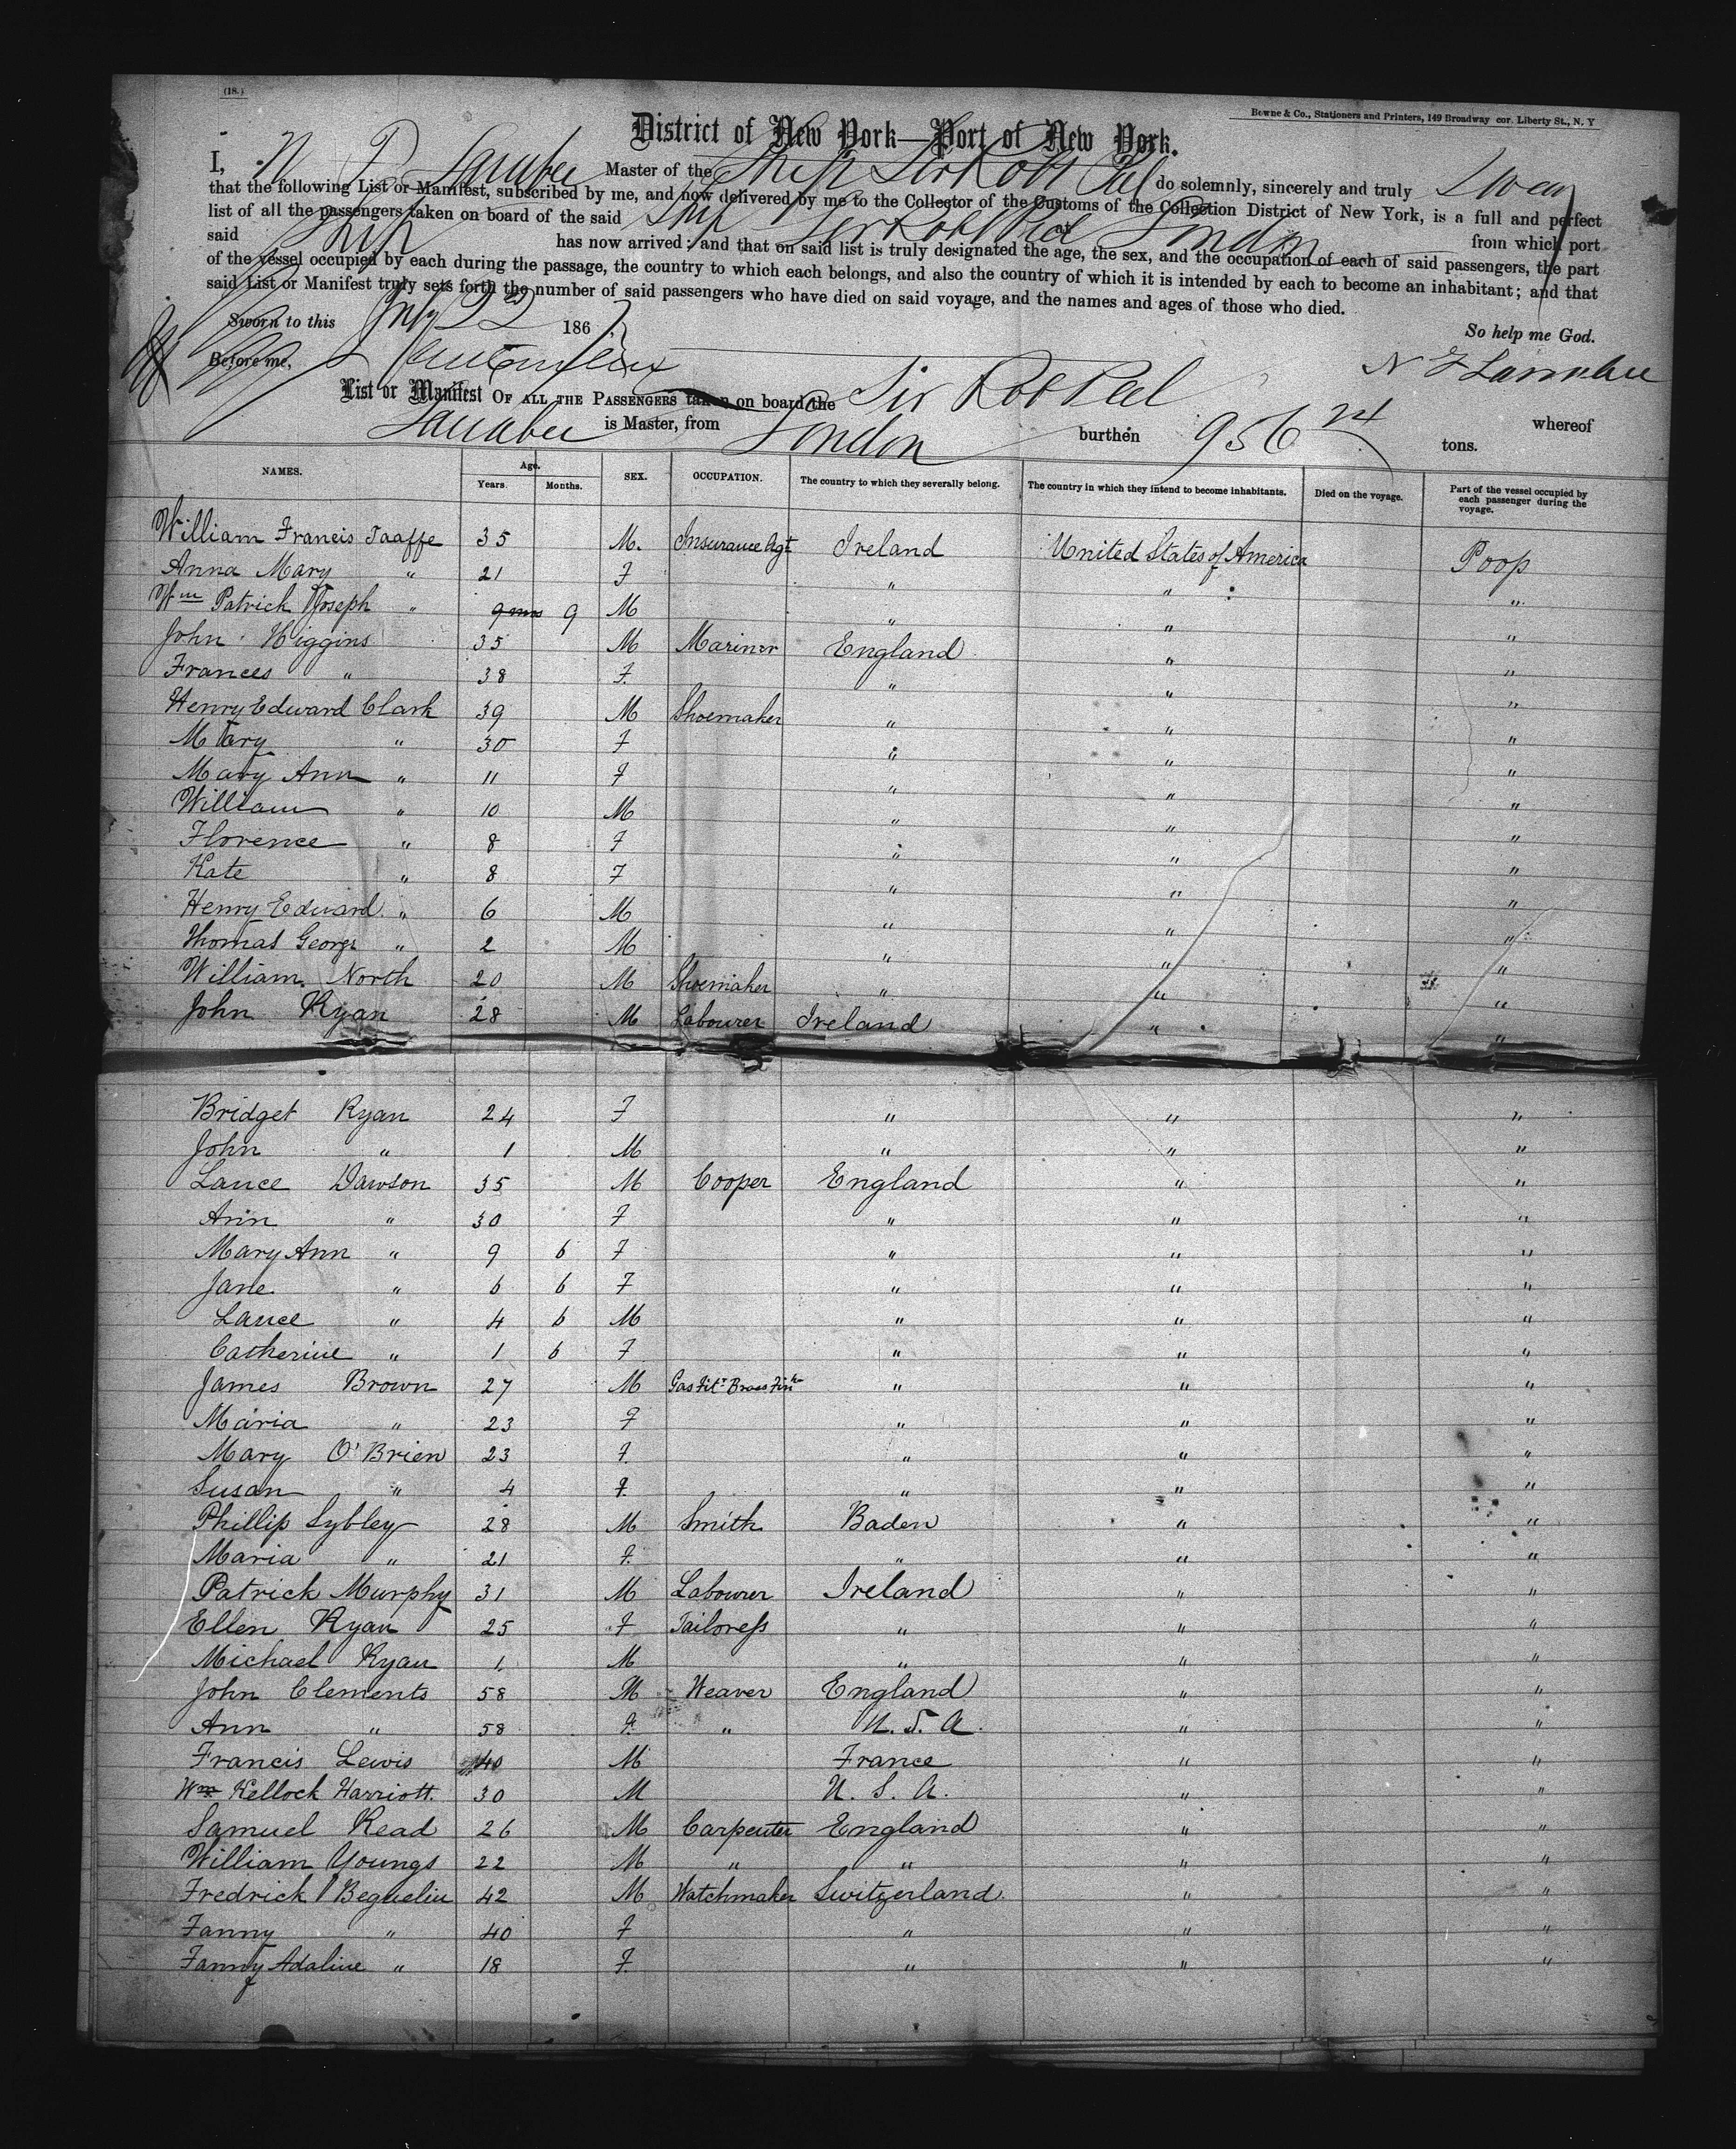 (18.)
Bowne & Co., Stationers and Printers, 149 Broadway cor. Liberty St., N. Y
District of New York—Port of New York.
I, Master of the Ship Sir Robt Peel do solemnly, sincerely and truly Swear
that the following List or Manifest, subscribed by me, and now delivered by me to the Collector of the Customs of the Collection District of New York, is a full and perfect
list of all the passengers taken on board of the said Ship Sir Robt Peel at London from which port
said Ship has now arrived; and that on said list is truly designated the age, the sex, and the occupation of each of said passengers, the part
of the vessel occupied by each during the passage, the country to which each belongs, and also the country of which it is intended by each to become an inhabitant; and that
said List or Manifest truly sets forth the number of said passengers who have died on said voyage, and the names and ages of those who died.
Sworn to this July 22d 1867 So help me God.
Before me,
List or Manifest OF ALL THE PASSENGERS taken on board the Sir Rob Peel whereof
is Master, from London burthen 956 tons.
NAMES. Age. Years. Months. SEX. OCCUPATION. The country to which they severally belong. The country in which they intend to become inhabitants. Died on the voyage. Part of the vessel occupied by each passenger during the voyage.
William Francis Taaffe 35 M. Insurance Agt Ireland United States of America Poop
Anna Mary " 21 F " " "
Wm Patrick Joseph " 9 mos 9 M " " "
John Higgins 35 M Mariner England " "
Frances " 38 F. " " "
Henry Edward Clark 39 M Shoemaker " " "
Mary " 30 F " " "
Mary Ann " 11 F " " "
William " 10 M " " "
Florence " 8 F " " "
Kate " 8 F " " "
Henry Edward " 6 M " " "
Thomas George " 2 M " " "
William North 20 M Shoemaker " " "
John Ryan 28 M Labourer Ireland " "
Bridget Ryan 24 F " " "
John " 1 M " " "
Lance Dawson 35 M Cooper England " "
Ann " 30 F " " "
Mary Ann " 9 6 F " " "
Jane " 6 6 F " " "
Lance " 4 6 M " " "
Catherine " 1 6 F " " "
James Brown 27 M Gas Fitr Brass Finhr " " "
Maria " 23 F " " "
Mary O'Brien 23 F. " " "
Susan " 4 F. " " "
Phillip Sybley 28 M Smith Baden " "
Maria " 21 F. " " "
Patrick Murphy 31 M Labourer Ireland " "
Ellen Ryan 25 F Tailoress " " "
Michael Ryan 1. M " " "
John Clements 58 M Weaver England " "
Ann " 58 F. " U. S. A. " "
Francis Lewis 40 M France " "
Wm Kellock Harriott. 30 M U. S. A. " "
Samuel Read 26 M Carpenter England " "
William Youngs 22 M " " " "
Fredrick Beguelin 42 M Watchmaker Switzerland " "
Fanny " 40 F " " "
Fanny Adaline " 18 F. " " "